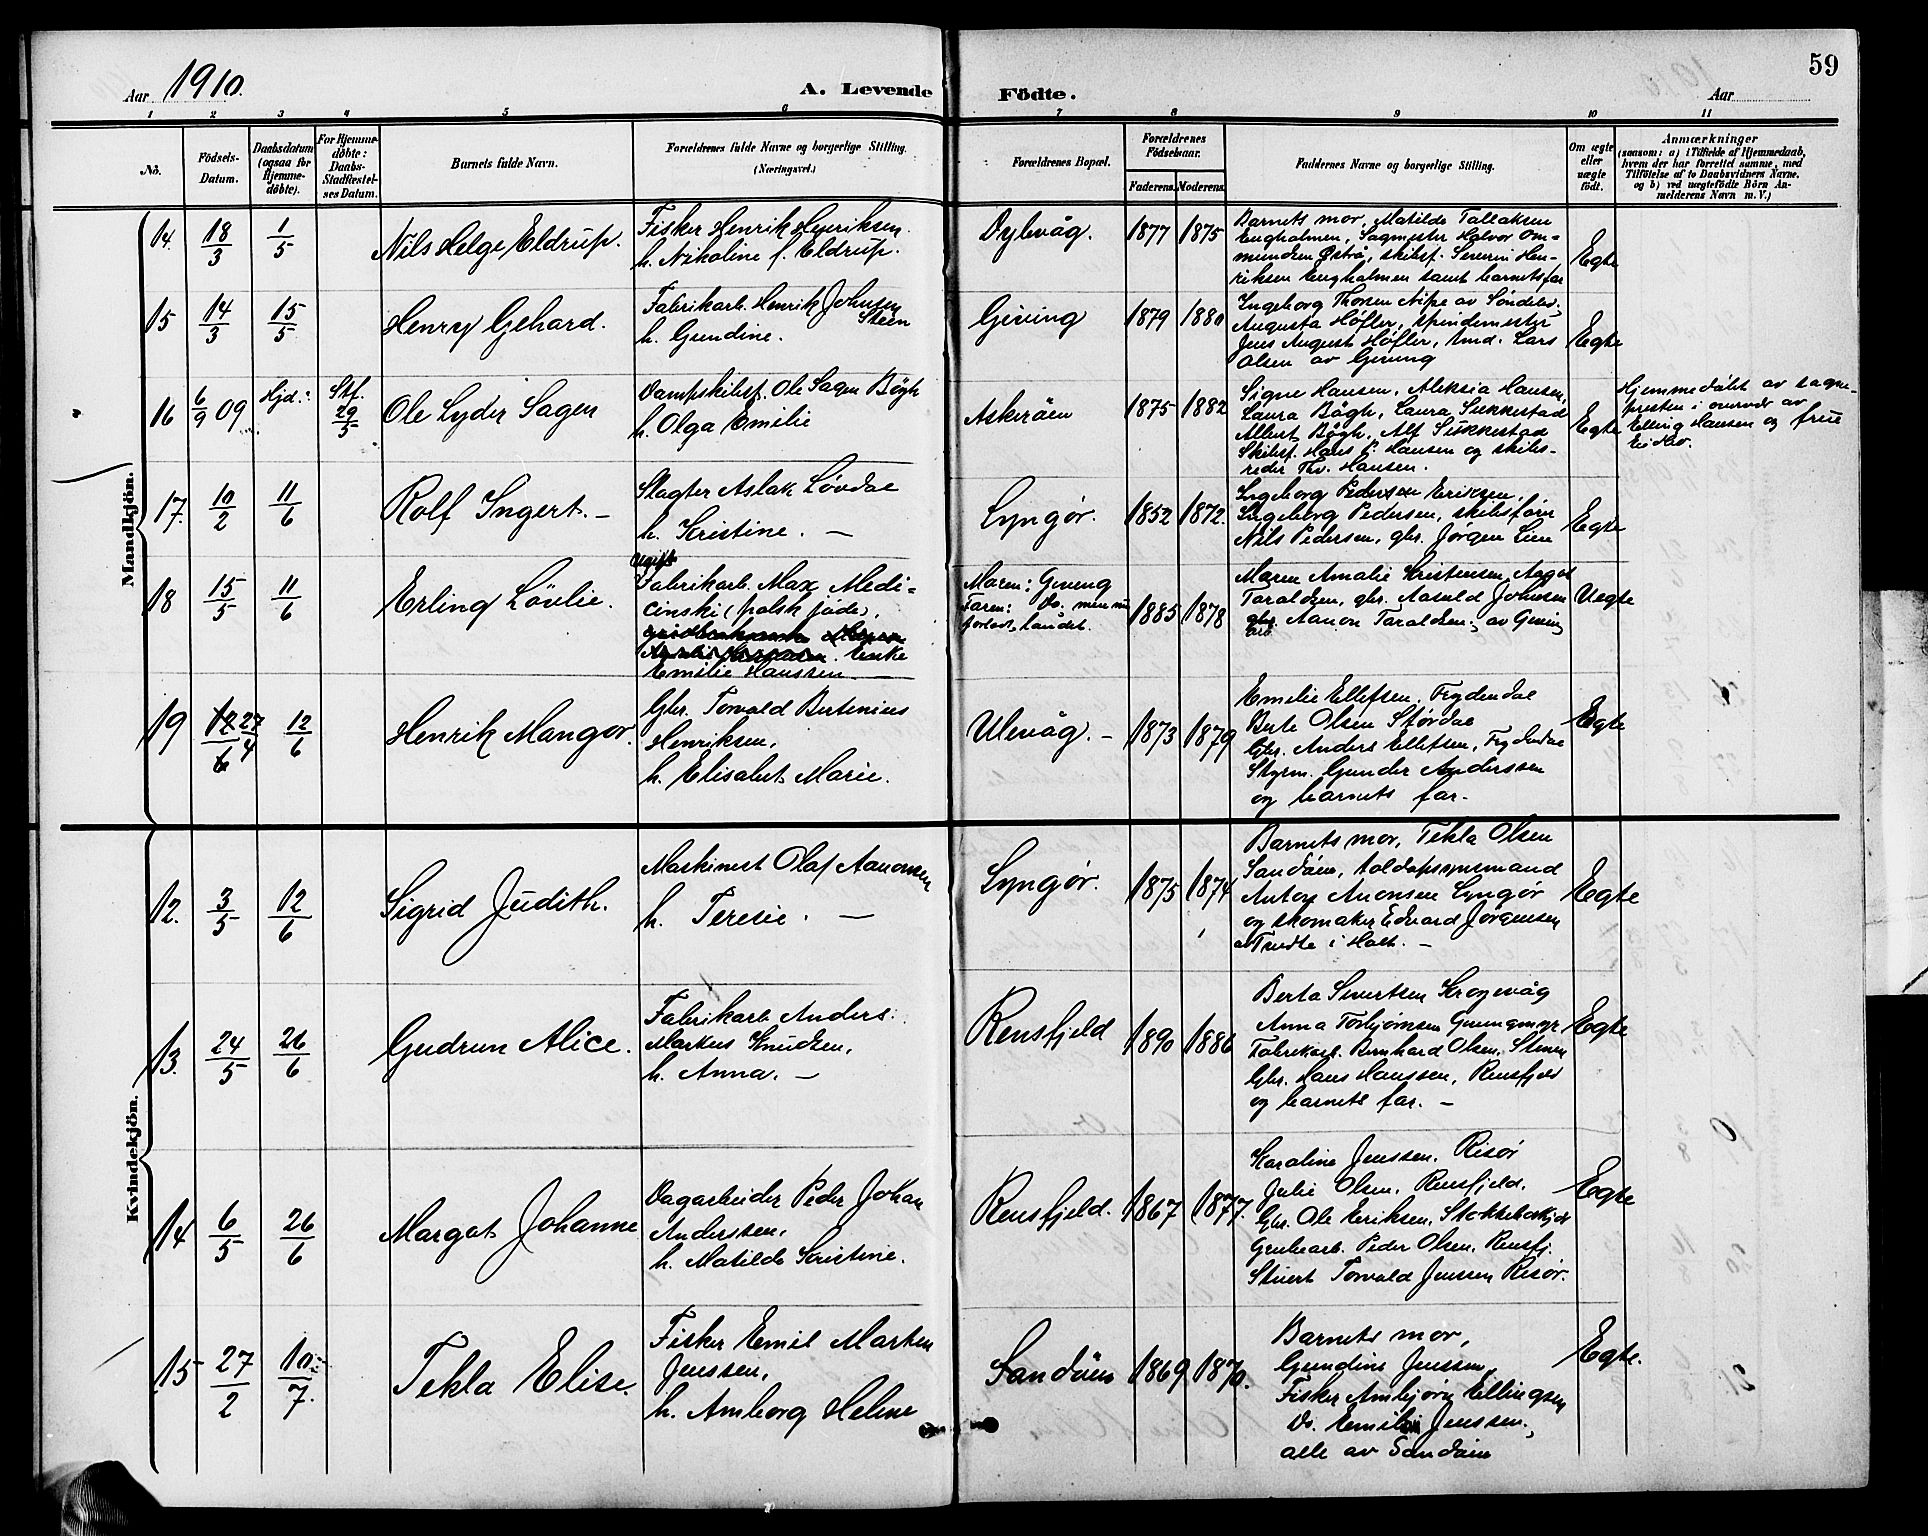 59
Aar 1910.
A. Levende Födte.
Aar
1 2 3 4 5 6 7 8 9 10 11
No.
Födsels-
Datum.
Daabsdatum
(ogsaa for
Hjemme-
döbte).
For Hjemme-
döbte:
Daabs-
Stadfæstel-
ses Datum.
Barnets fulde Navn.
Forældrenes fulde Navne og borgerlige Stilling.
(Næringsvei.)
Forældrenes Bopæl.
Forældrenes
Födselsaar.
Faderens. Moderens.
Faddernes Navne og borgerlige Stilling.
Om ægte
eller
uægte
födt.
Anmærkninger
(saasom: a) i Tilfælde af Hjemmedaab,
hvem der har forrettet samme, med
Tilföielse af to Daabsvidners Navne,
og b) ved uægtefödte Börn An-
melderens Navn m. V.)
Mandkjön.
14. 18/3 1/5
Nils Helge Eldrup.
Fisker Henrik Henriksen.
h. Nikoline f. Eldrup.
Dybvåg.
1877 1875
Barnets mor, Matilde Tallaksen
Engholmen, Sagmester Halvor Om=
mundsen Østrå, skibsf. Severin Hen-
riksen Engholmen samt barnets far
Egte
15 14/3 15/5
Henry Gehard.
Fabrikarb. Henrik Johnsen
Steen
h. Gundine.
Giving
1879 1880
Ingeborg Thorsen Nipe av Söndeled,
Augusta Høfler, spindemester
Jens August Høfler, Lars
Olsen av Giving
Egte
16 6/9 09 Hjd. Stf. 29/5
Ole Lyder Sagen
Dampskibsf. Ole Sagen Bögh
h. Olga Emilie
Askeröen
1875 1882
Signe Hansen, Aleksia Hansen,
Laura Bögh, Laura Sukkestad
Albert Bögh, Alf Sukkestad
Skibsf. Hans P. Hansen og skibs-
reder Thv. Hansen.
Egte
Hjemmedöbt av sogne-
presten i overvær av
Elling Hansen og frue
17. 10/2 11/6
Rolf Ingert. –
Slagter Aslak Lövdal
h. Kristine. –
Lyngør.
1852 1872.
Ingeborg Pedersen Eriksen,
Ingeborg Pedersen, skibsförer
Nils Pedersen, gbr. Jörgen Lien
Egte
18 15/5 11/6
Erling Lövlie.
Ugift
Fabrikarb. Max Medi=
cinski (polsk jöde),
Enke
Emilie Hanssen –
Moren: Giving
Faren: Do. men nu
forladt landet.
1885 1878
Maren Amalie Kristensen, Aagot
Taraldsen, gbr. Aasuld Johnsen
gbr. Aanon Taraldsen, av Giving
Uegte
19 12/6 27/4 12/6
Henrik Mangor.
Gbr. Torvald Bertinius
Henriksen,
h. Elisabet Marie.
Ulevåg. –
1873 1879
Emelie Ellefsen, Frydendal
Berte Olsen Størdal
Gbr. Anders Ellefsen, Frydendal
Styrm. Gunder Anderssen
og barnets far.
Egte
Kvindekjön.
12. 3/5 12/6
Sigrid Judith.
Maskinist Olaf Aanonsen
h. Teresie. –
Lyngør.
1875 1874
Barnets mor, Tekla Olsen
Sandöen, toldopsynsmand
Anton Anonsen Lyngör
og skomaker Edvard Jörgensen
Trudte i Holt. –
Egte
13. 24/5 26/6
Gudrun Alice.
Fabrikarb. Anders
Markus Knudsen,
h. Anna. –
Rensfjeld
1890 1886
Berta Sivertsen Krogevåg
Anna Torbjörnsen
Fabrikarb. Bernhard Olsen,
Gbr. Hans Hanssen, Rensfjeld
og barnets far. –
Egte
14 6/5 26/6
Margot Johanne
Dagarbeider Peder Johan
Anderssen,
h. Matilde Kristine.
Rensfjeld.
1867 1877.
Karoline Jenssen. Risör
Julie Olsen, Rensfjeld.
Gbr. Ole Eriksen,
Grubearb. Peder Olsen, Rensfj.
Stuert Torvald Jenssen Risör.
Egte
15 27/2 10/7.
Tekla Elise.
Fisker Emil Marken
Jenssen,
h. Amborg Helene
Sandöen
1869 1870.
Barnets mor,
Gundine Jenssen,
Fisker Arnbjörn Ellingsen
Do. Emil Jenssen,
alle av Sandöen
Egte.